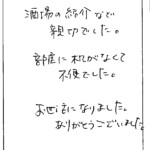 酒場の紹介など
親切でした。
部屋に机がなくて
不便でした。
お世話になりました。
ありがとうございました。